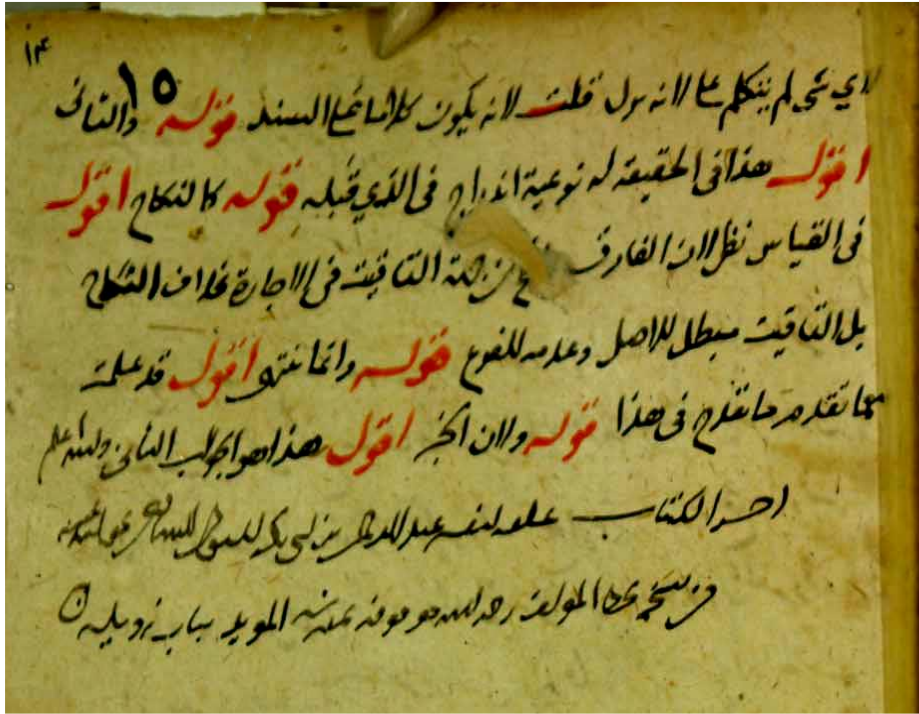 ١٣
لاي شي لم يتكلم على لانه قلت لانه يكون كلاما على السند قوله والثاني
اقول هذا في الحقيقة له نوعية اندراج في الذي قبله قوله كالنكاح اقول
في القياس نظر لان الفارق من جهة التاقيت في الاجارة بخلاف النكاح
بل التاقيت مبطل للاصل وعدمه للفرع قوله وانما اقول قد علمت
مما تقدم ما يقدح في هذا قوله ولان اقول هذا هو الجواب الثاني والله اعلم
اخر الكتاب علقه لنفسه عبد الرحمن بن ابي بكر السيوطي الشافعي
من نسخة بخط المولف رحمه الله موقوفة المويد بباب زويلة